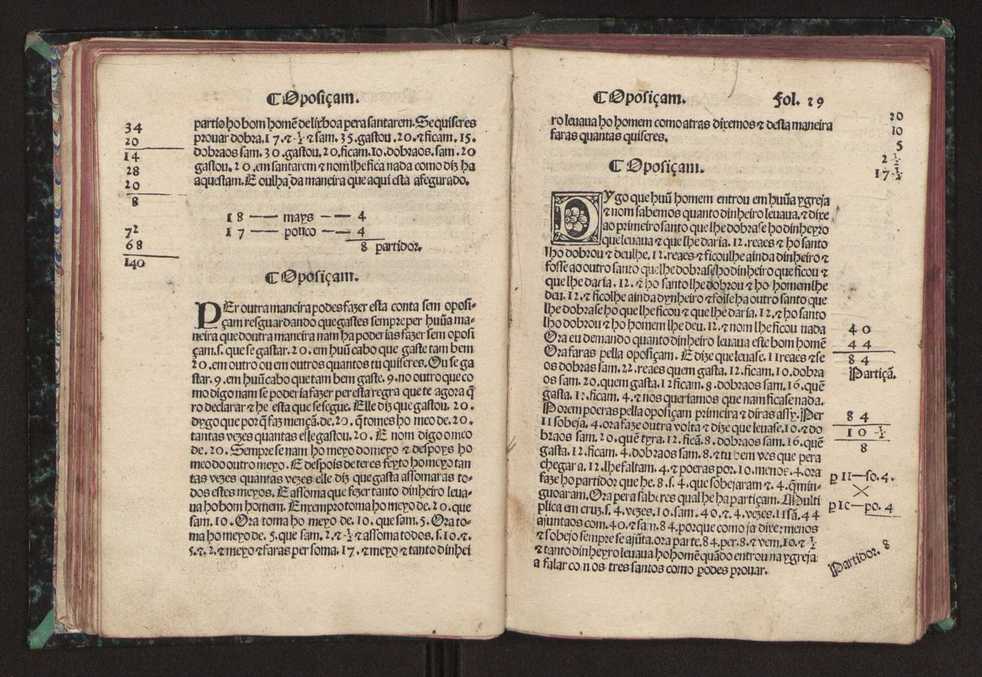 ¶Oposiçam.
34
20
14
28
20
8
72
68
140
partio ho bom homẽ de lixboa pera santarem. Se quiseres
prouar dobra.17.⁊.½ ⁊ sam.35.gastou.20.⁊ ficam.15.
dobraos sam.30.gastou.20.ficam.10.dobraos.sam.20
gastou.20.em santarem ⁊ nom lhe fica nada como diz ha
aquestam. E oulha da maneira que aqui esta afegurado.
18 — mays — 4
17 — pouco — 4
8 partidor.
¶Oposiçam.
PEr outra maneira podes fazer esta conta sem oposi-
çam resguardando que gastes sempre per huũa ma-
neira que doutra maneira nam ha poderias fazer sem oposi
çam.s. que se gastar.20.em huũ cabo que gaste tam bem
20.em outro ou em outros quantos tu quiseres. Ou se ga
star.9.em huũ cabo que tam bem gaste.9.no outro que co
mo digo nam se poderia fazer per esta regra que te agora q̃
ro declarar ⁊ he esta que se segue. Elle diz que gastou.20.
dygo que por q̃ faz mençã.de.20.q̃ tomes ho meo de.20.
tantas vezes quantas elle gastou.20. E nom digo o meo
de.20. Sempre se nam ho meyo do meyo ⁊ despoys ho
meo do outro meyo. E despois de teres feyto ho meyo tan
tas vezes quantas vezes elle diz que gasta assomaras to-
dos estes meyos. E a ssoma que fezer tanto dinheiro leua-
ua ho bom homem. Enxempro toma ho meyo de.20.que
sam.10. Ora toma ho meyo de.10.que sam.5. Ora to-
ma ho meyo de.5.que sam.2.⁊.½ ⁊ assoma todos.s.10.⁊.
5.⁊.2.⁊ meyo ⁊ faras per soma.17.⁊ meyo ⁊ tanto dinhei
¶Oposiçam. Fol. 19
ro leuaua ho homem como atras dixemos ⁊ desta maneira
faras quantas quiseres.
20
10
5
2 ½
17 ½
¶Oposiçam.
DYgo que huũ homem entrou em huũa ygreja
⁊ nom sabemos quanto dinheiro leuaua,⁊ dixe
ao primeiro santo que lhe dobrase ho dinheyro
que leuaua ⁊ que lhe daria.12.reaes ⁊ ho santo
lho dobrou ⁊ deulhe.12.reaes ⁊ ficoulhe ainda dinheiro ⁊
fosse ao outro santo que lhe dobrase ho dinheiro que ficou ⁊
que lhe daria.12.⁊ ho santo lhe dobrou ⁊ ho homem lhe
deu.12.⁊ ficolhe ainda dynheiro ⁊ foise ha outro santo que
lhe dobrase ho que lhe ficou ⁊ que lhe daria.12.⁊ ho santo
lho dobrou ⁊ ho homem lhe deu.12.⁊ nom lhe ficou nada
Ora eu demando quanto dinheiro leuaua este bom homẽ
Ora faras pella oposiçam. E dize que leuase.11 reaes ⁊ se
os dobras sam.22.reaes quem gasta.12.ficam.10.dobra
os sam.20.quem gasta.12 ficam.8.dobraos sam.16.quẽ
gasta.12.ficam.4.⁊ nos queriamos que nam ficase nada.
Porem poeras pella oposiçam primeira ⁊ diras assy. Per
11 sobeja.4.ora faze outra volta ⁊ dize que leuase.10.⁊ do
braos sam.20.quẽ tyra.12.ficã.8.dobraos sam.16.quẽ
gasta.12.ficam.4.dobraos sam.8.⁊ tu bem ves que pera
chegar a.12.lhe faltam.4.⁊ poeras por.10.menos.4.ora
faze ho partidor que he.8.s.4.que sobejaram ⁊.4.q̃ min-
guoaram. Ora pera saberes qual he ha partiçam. Multi
plica em cruz.s.4.vezes.10.sam.40.⁊.4.vezes.11 sã.44
ajuntaos com.40.⁊ sam.84.porque como ja dixe: menos
⁊ sobejo sempre se ajũta.ora parte.84.per.8.⁊ vem.10.⁊ ½
⁊ tanto dinheyro leuaua ho homẽ quãdo entrou na ygreja
a falar com os tres santos como podes prouar.
40
44
84
Partiçã.
84
10 ½
8
p 11—so.4.
p 10—po.4
Partidor. 8